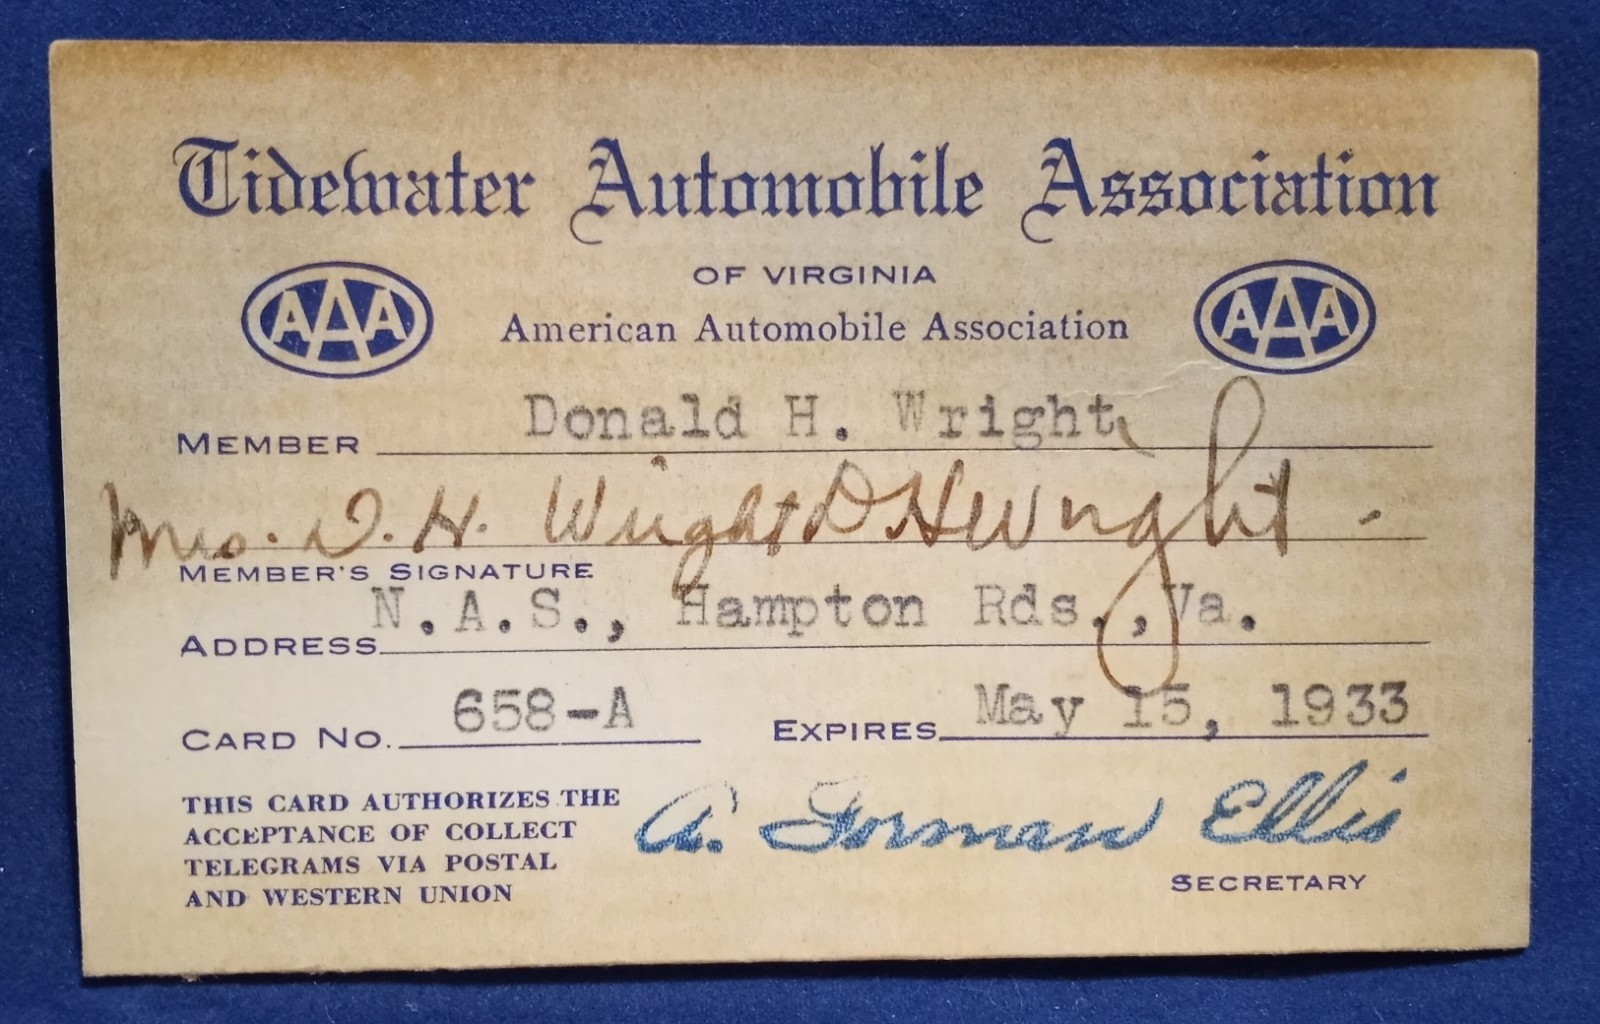 Tidewater Automobile Association
OF VIRGINIA
AAA
American Automobile Association
AAA
MEMBER Donald H. Wright
Mrs. D. H. Wright D H Wright -
MEMBER'S SIGNATURE
ADDRESS N.A.S., Hampton Rds., Va.
CARD NO. 658-A EXPIRES May 15, 1933
THIS CARD AUTHORIZES THE
ACCEPTANCE OF COLLECT
TELEGRAMS VIA POSTAL
AND WESTERN UNION
A. Forman Ellis
SECRETARY